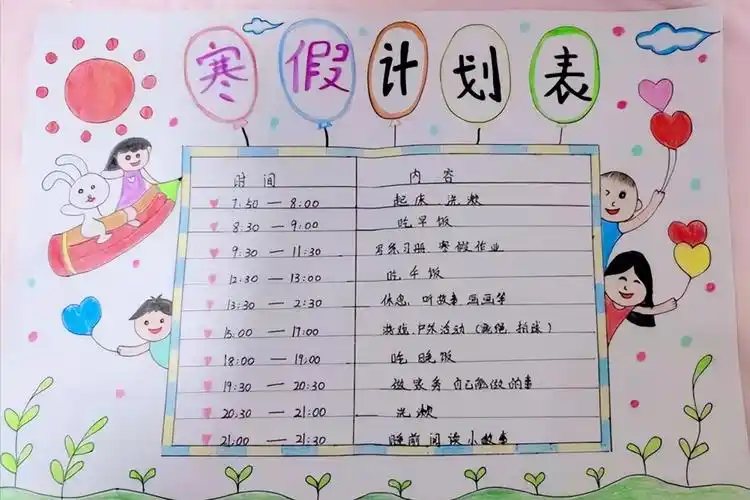 寒假计划表
时间 内容
7:50 — 8:00 起床 洗漱
8:30 — 9:00 吃早饭
9:30 — 11:30 写练习册 寒假作业
12:30 — 13:00 吃午饭
13:30 — 2:30 休息、听故事 画画等
15:00 — 17:00 游戏、户外活动（跳绳 拍球）
18:00 — 19:00 吃晚饭
19:30 — 20:30 做家务 自己能做的事
20:30 — 21:00 洗漱
21:00 — 21:30 睡前阅读小故事